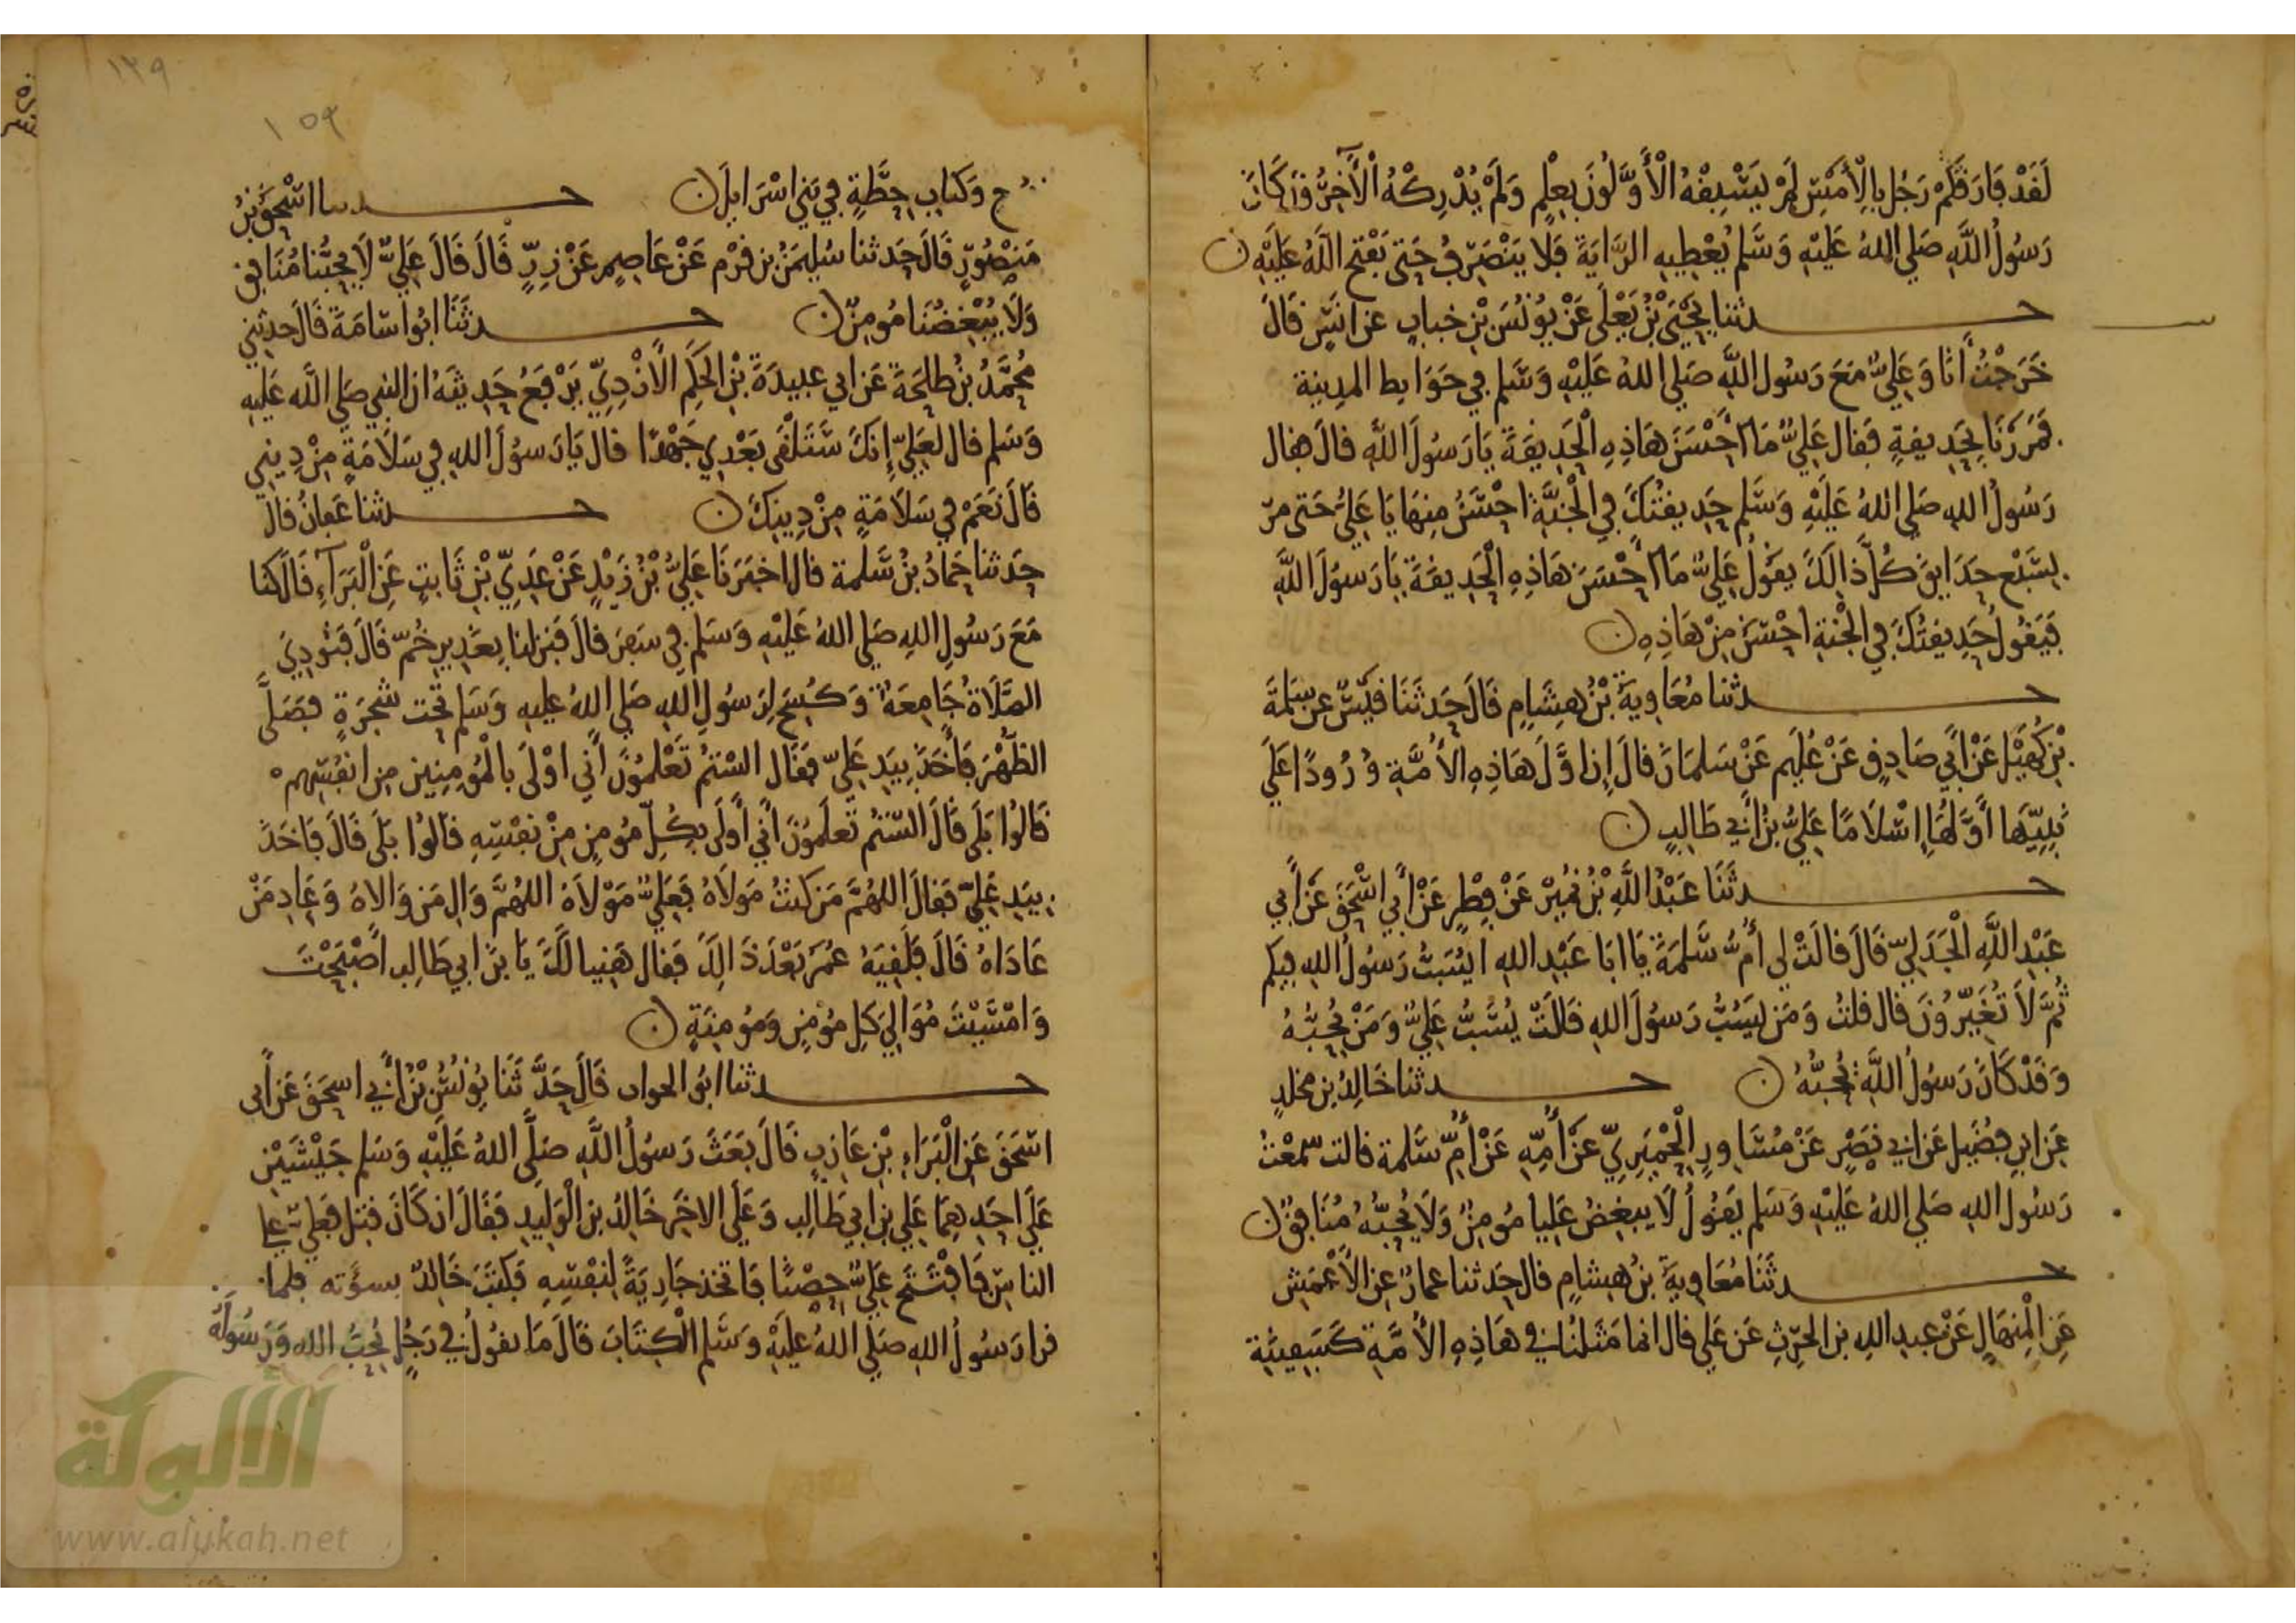 لَقَدْ فَارَقَكُمْ رَجُلٌ بِالْأَمْسِ لَمْ يَسْبِقْهُ الْأَوَّلُونَ بِعِلْمٍ وَلَمْ يُدْرِكْهُ الْآخِرُونَ كَانَ
رَسُولُ اللَّهِ صَلَى اللهُ عَلَيْهِ وَسَلَم يُعْطِيهِ الرَّايَةَ فَلَا يَنْصَرِفُ حَتى يَفْتَحَ اللَّهُ عَلَيْهِ ن
حدثنا يَحْيَى بْنُ يَعْلَى عَنْ يُونُسَ بْنِ خبابٍ عن انَسٍ قَالَ
خَرَجْتُ أَنَا وَعَلِيٌّ مَعَ رَسُولِ اللَّهِ صَلى اللهُ عَلَيْهِ وَسَلم فِي حَوَايِطِ المدِينة
فَمَرَرْنَا بِحَدِيقةٍ فَقال عَلِيٌّ مَا أَحْسَنَ هَاذِهِ الْحَدِيقَةَ يَا رَسُولَ اللَّهِ قالَ فقال
رَسُولُ اللهِ صَلى اللهُ عَلَيْهِ وَسَلم حَدِيقَتُكَ فِي الْجَنَّةِ احْسَنُ مِنهَا يَا عَلِيُّ حَتى مرّ
بِسَبْعِ حَدَايِقَ كُلَّ ذَالِكَ يَقُولُ عَلِيٌّ مَا أَحْسَنَ هَاذِهِ الْحَدِيقَةَ يَا رَسُولَ اللَّهِ
فَيَقُولُ حَدِيقتُكَ فِي الْجَنةِ احْسَنُ مِنْ هَاذِهِ ن
حدثنا مُعَاوِيَةُ بْنُ هِشَامٍ قَالَ حَدثَنَا قَيْسٌ عن سَلمَةَ
بْنِ كُهَيْلٍ عَنْ أَبِي صَادِقٍ عَنْ عُلَيْمٍ عَنْ سَلمَانَ قالَ إِن أوَّلَ هَاذِهِ الأُمَّةِ وُرُودًا عَلَى
نَبِيِّهَا أَوَّلُهَا إِسْلَامًا عَلِيُّ بْنُ أَبِي طَالِبٍ ن
حدثَنَا عَبْدُ اللَّهِ بْنُ نُمَيْرٍ عَنْ فِطْرٍ عَنْ أَبِي اسْحَقَ عَنْ أَبِي
عَبْدِ اللَّهِ الْجَدَلِيِّ قَالَ قالَتْ لِي أُمُّ سَلَمَةَ يَا ابَا عَبْدِ اللهِ ايُسَبُّ رَسُولُ اللهِ فِيكم
ثُمَّ لَا تُغَيِّرُونَ قال قلتُ وَمَن يَسُبُّ رَسُولَ اللهِ قَالَتْ يُسَبُّ عَلِيٌّ وَمَنْ يُحِبُّهُ
وَقَدْ كَانَ رَسُولُ اللَّهِ يُحِبُّهُ ن حدثنا خَالِدُ بن مخلدٍ
عَنِ ابنِ فُضَيلٍ عَن ابي نَصْرٍ عَنْ مُسَاوِرٍ الْحِمْيَرِيِّ عَنْ أُمِّهِ عَنْ أُمِّ سَلمة قالت سَمعْتُ
رَسُولَ اللهِ صَلى اللهُ عَلَيْهِ وَسَلم يَقُولُ لَا يبغِضُ عَلِيا مُومِنٌ وَلَا يُحِبُّهُ مُنَافِقٌ ن
حدثَنَا مُعَاوِيَةُ بْنُ هِشامٍ قال حَدثنا عمارٌ عن الأَعْمَشِ
عَنِ الْمِنهَالِ عَنْ عبد اللهِ بن الحرِثِ عَن عَلي قال انما مَثَلُنَا في هَاذِهِ الأُمَّةِ كَسَفِينَةِ
١٣٩
١٥٩
نوح وَكتابِ حِطَّةٍ فِي بَنِي اسْرَايلَ ن حدثنا اسْحَقُ بْنُ
مَنْصُورٍ قَالَ حَدثنا سُلَيمَنُ بن قَرْمٍ عَنْ عَاصِمٍ عَنْ زِرٍّ قَالَ قَالَ عَلِيٌّ لَا يُحِبُّنا مُنَافِق
وَلَا يُبْغِضُنَا مُومِنٌ ن حدثَنَا ابُو اسَامَةَ قَالَ حدثني
مُحَمَّدُ بْنُ طلحَةَ عَن ابي عبيدَةَ بْنِ الحَكَمِ الْأَزْدِيِّ يَرْفَعُ حَدِيثَهُ ان النبي صَلى اللَّه عَلَيهِ
وَسَلم قال لعَلِيٍّ إِنكَ سَتَلْقَى بَعْدِي جَهْدًا قال يَا رَسُولَ اللهِ فِي سَلَامَةٍ مِنْ دِينِي
قَالَ نَعَمْ فِي سَلَامَةٍ مِنْ دِينِكَ ن حدثنا عَفانُ قال
حَدثنا حَمادُ بنُ سَلمة قال اخبَرَنَا عَلِيُّ بْنُ زَيْدٍ عَنْ عَدِيِّ بْنِ ثَابتٍ عَنِ الْبَرَآءِ قَالَ كنا
مَعَ رَسُولِ اللهِ صَلى اللهُ عَلَيْهِ وَسَلم فِي سَفَرٍ قالَ فَنَزلنا بِغَدِيرِ خُمّ قَالَ فَنُودِيَ
الصَّلَاةُ جَامِعَةٌ وَكُسِحَ لِرَسُولِ اللهِ صَلى اللهُ عَليهِ وَسَلم تَحْت شجَرَةٍ فصَلَّى
الظهْرَ فَأَخَذَ بِيَدِ عَلِيّ فَقَال السْتُمْ تَعْلمُونَ أَني اوْلَى بالْمُومِنِين مِن انفُسِهم
قَالُوا بَلَى قَالَ السْتُمْ تَعلَمُونَ أَنِي أَولَى بِكُلِّ مُومِنٍ مِنْ نَفْسِهِ قالُوا بَلَى قَالَ فَاخَذَ
بِيَدِ عَلِيّ فَقالَ اللهُمَّ مَن كنتُ مَولَاهُ فَعَلِيٌّ مَوْلَاهُ اللهُمَّ وَالِ مَن وَالاهُ وَعَادِ مَنْ
عَادَاهُ قَالَ فَلَقِيَهُ عُمَرُ بَعْدَ ذَالِكَ فَقال هَنِيا لَكَ يَا بنَ ابي طَالِبٍ أَصْبَحْتَ
وَامْسَيْتَ مُوَالِيَ كلِ مُؤْمِنٍ وَمُومِنَةٍ ن
حدثنا ابو الجواب قَالَ حَدَّثَنَا يُونُسُ بْنُ أَبِي اسحَقَ عَن أَبِي
اسْحَقَ عَنِ الْبَرَاءِ بْنِ عَازِبٍ قَالَ بَعَثَ رَسُولُ اللَّهِ صَلَّى اللهُ عَلَيْهِ وَسَلم جَيْشَيْنِ
عَلَى احَدِهِمَا عَلي بن ابي طَالِب وَعَلَى الاخَرِ خَالدُ بنُ الْوَلِيدِ فَقَالَ ان كَانَ قتل فعَلِيّ على
الناسِ فَافْتَتَحَ عَلِيٌّ حِصْنًا فَاتخذ جَارِيَةً لنَفْسِهِ فَكَتَبَ خَالِدٌ بسوءته فلما
قرا رَسُولُ اللهِ صَلَى اللهُ عَلَيْهِ وَسَلم الْكِتَابَ قَالَ مَا يقُولُ فِي رَجُلٍ يُحِبُّ اللهَ وَرَسُولَهُ
الألوكة
www.alukah.net